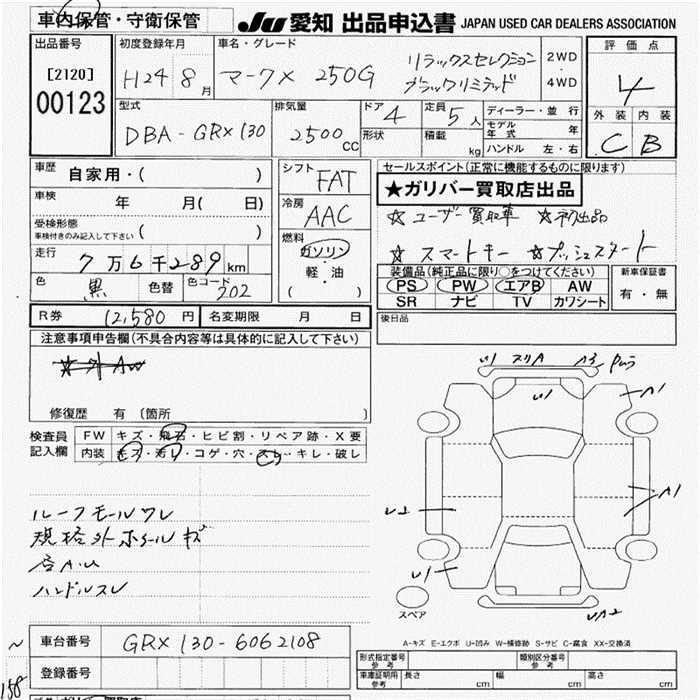 車内保管・守衛保管
JU 愛知 出品申込書 JAPAN USED CAR DEALERS ASSOCIATION
出品番号
[2120]
00123
初度登録年月
H24 8月
車名・グレード
マークX 250G
リラックスセレクション
ブラックリミテッド
2WD
4WD
評価点
4
外装 内装
C B
型式
DBA-GRX130
排気量
2500cc
ドア 4
形状
定員 5人
積載 kg
ディーラー・並行
モデル年式 年
ハンドル 左・右
車歴 自家用・( )
車検 年 月( 日)
受検形態
車検付きのみ記入して下さい ( )
走行 7万6千289km
色 黒 色替 色コード 202
シフト FAT
冷房 AAC
燃料
ガソリン
軽・油
( )
セールスポイント(正常に機能するものに限ります)
★ガリバー買取店出品
☆ユーザー買取車 ☆初出品
☆スマートキー ☆プッシュスタート
装備品(純正品に限り○をつけてください)
PS PW エアB AW
SR ナビ TV カワシート
新車保証書
有・無
R券 12,580円 名変期限 月 日
後日品
注意事項申告欄(不具合内容等は具体的に記入して下さい)
修復歴 有(箇所 )
検査員記入欄
FW キズ・飛石・ヒビ割・リペア跡・X要
内装 キズ・汚レ・コゲ・穴・スレ・キレ・破レ
ルーフモールワレ
規格外ホイールキズ
ハンドルスレ
U1 スリA A3
U1
A1
A1
U1
UA2
スペア
A-キズ E-エクボ U-凹み W-補修跡 S-サビ C-腐食 XX-交換済
車台番号 GRX130-6062108
登録番号
形式指定番号 参考
類別区分番号 参考
車庫証明用 参考 長さ cm 幅 cm 高さ cm
~
158